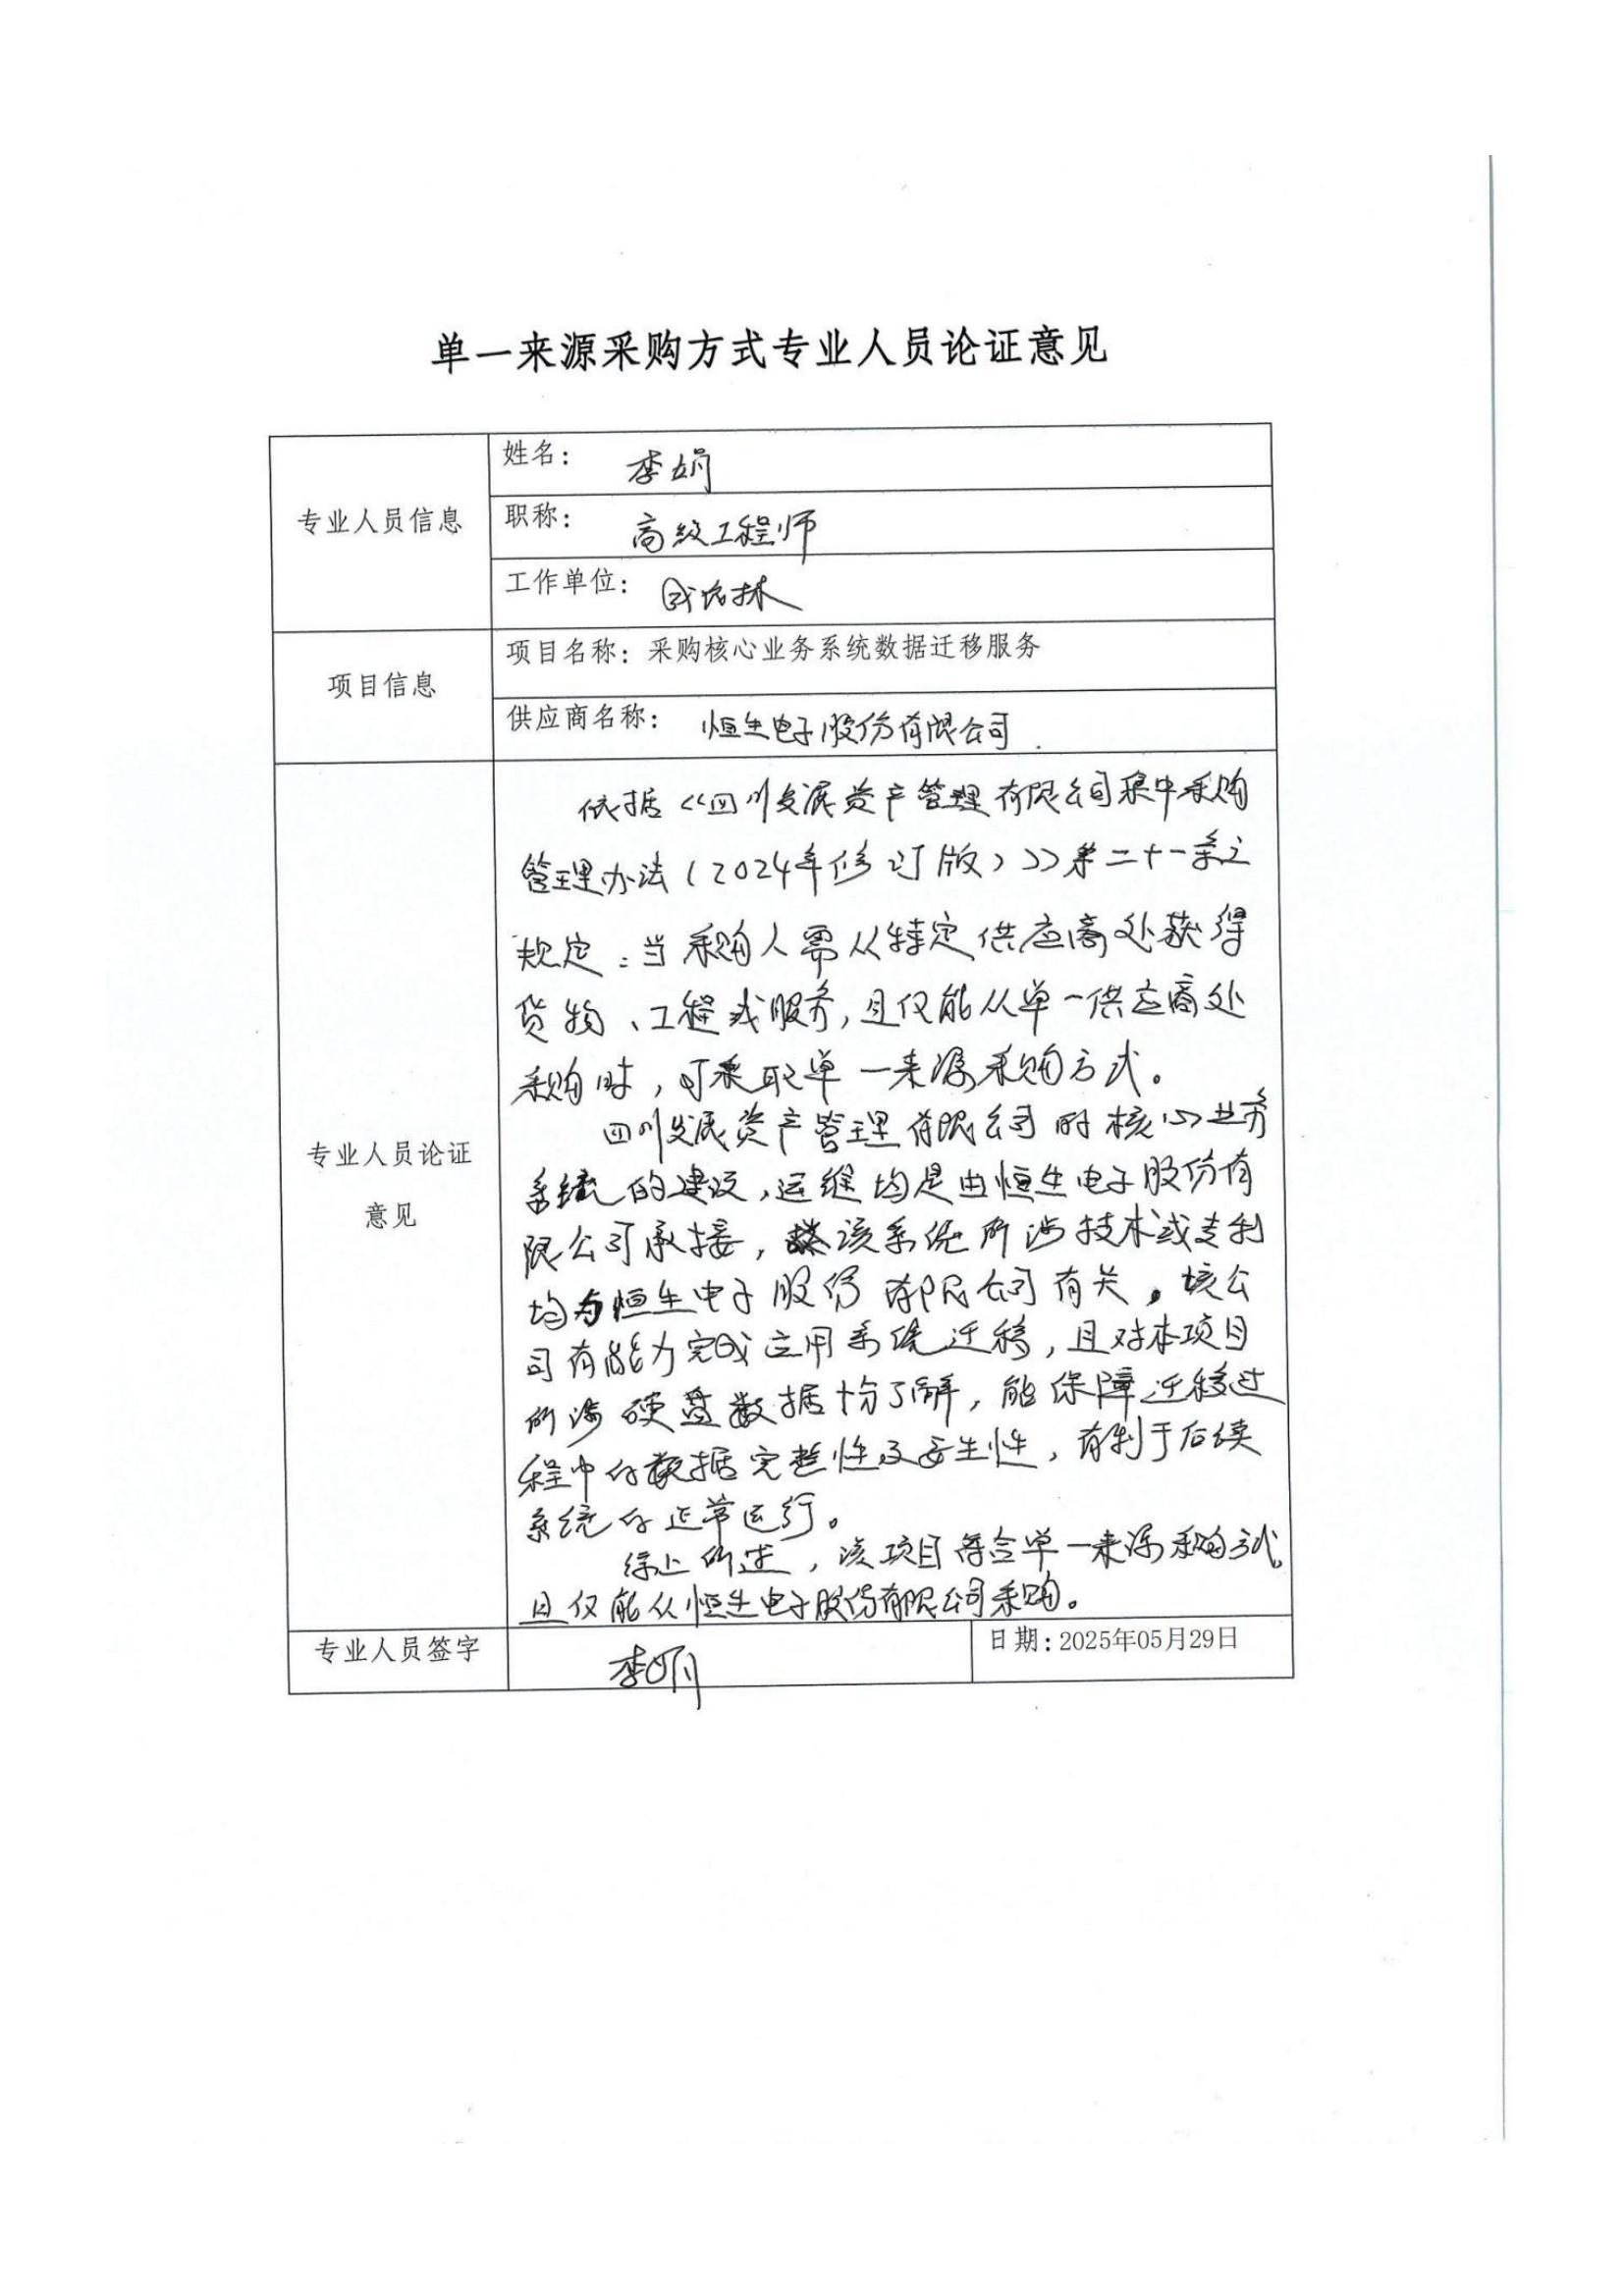 单一来源采购方式专业人员论证意见
专业人员信息
姓名： 李娟
职称： 高级工程师
工作单位：
项目信息
项目名称：采购核心业务系统数据迁移服务
供应商名称： 恒生电子股份有限公司
专业人员论证
意见
依据《四川发展资产管理有限公司集中采购
管理办法（2024年修订版）》第二十一条之
规定：当采购人需从特定供应商处获得
货物、工程或服务，且仅能从单一供应商处
采购时，可采取单一来源采购方式。
四川发展资产管理有限公司的核心业务
系统的建设，运维均是由恒生电子股份有
限公司承接，该系统所涉技术或专利
均与恒生电子股份有限公司有关。该公
司有能力完成应用系统迁移，且对本项目
所涉硬盘数据十分了解，能保障迁移过
程中的数据完整性及安全性，有利于后续
系统的正常运行。
综上所述，该项目符合单一来源采购方式，
且仅能从恒生电子股份有限公司采购。
专业人员签字
李娟
日期：2025年05月29日